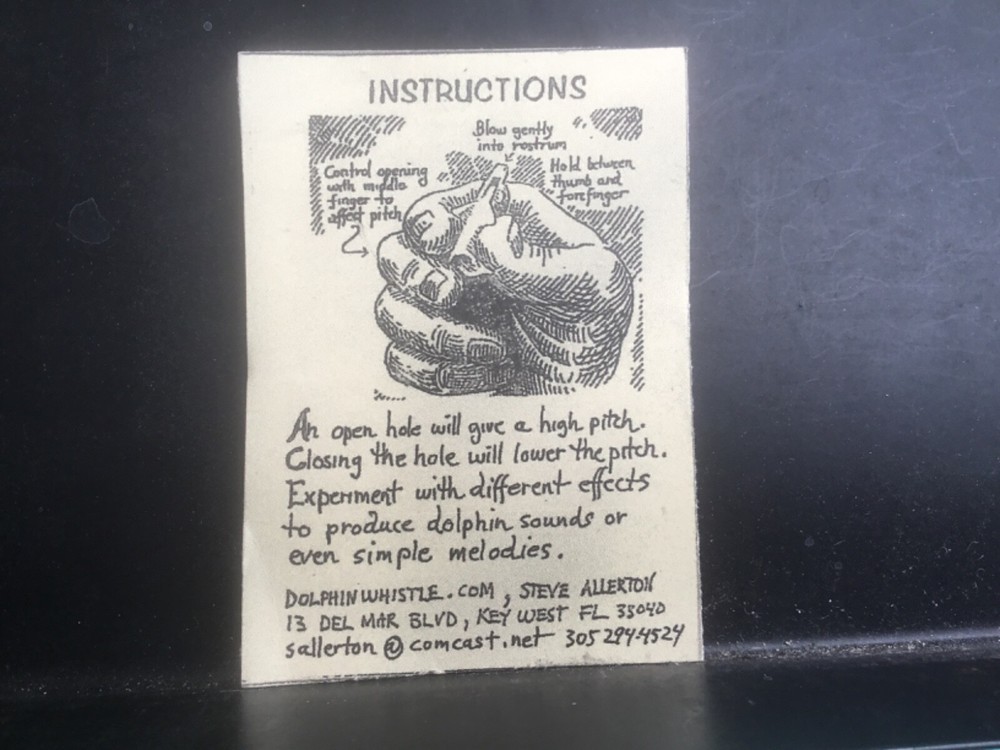 INSTRUCTIONS
Blow gently
into rostrum
Control opening
with middle
finger to
affect pitch
Hold between
thumb and
forefinger
An open hole will give a high pitch.
Closing the hole will lower the pitch.
Experiment with different effects
to produce dolphin sounds or
even simple melodies.
DOLPHINWHISTLE.COM, STEVE ALLERTON
13 DEL MAR BLVD, KEY WEST FL 33040
sallerton@comcast.net 305 294-4524